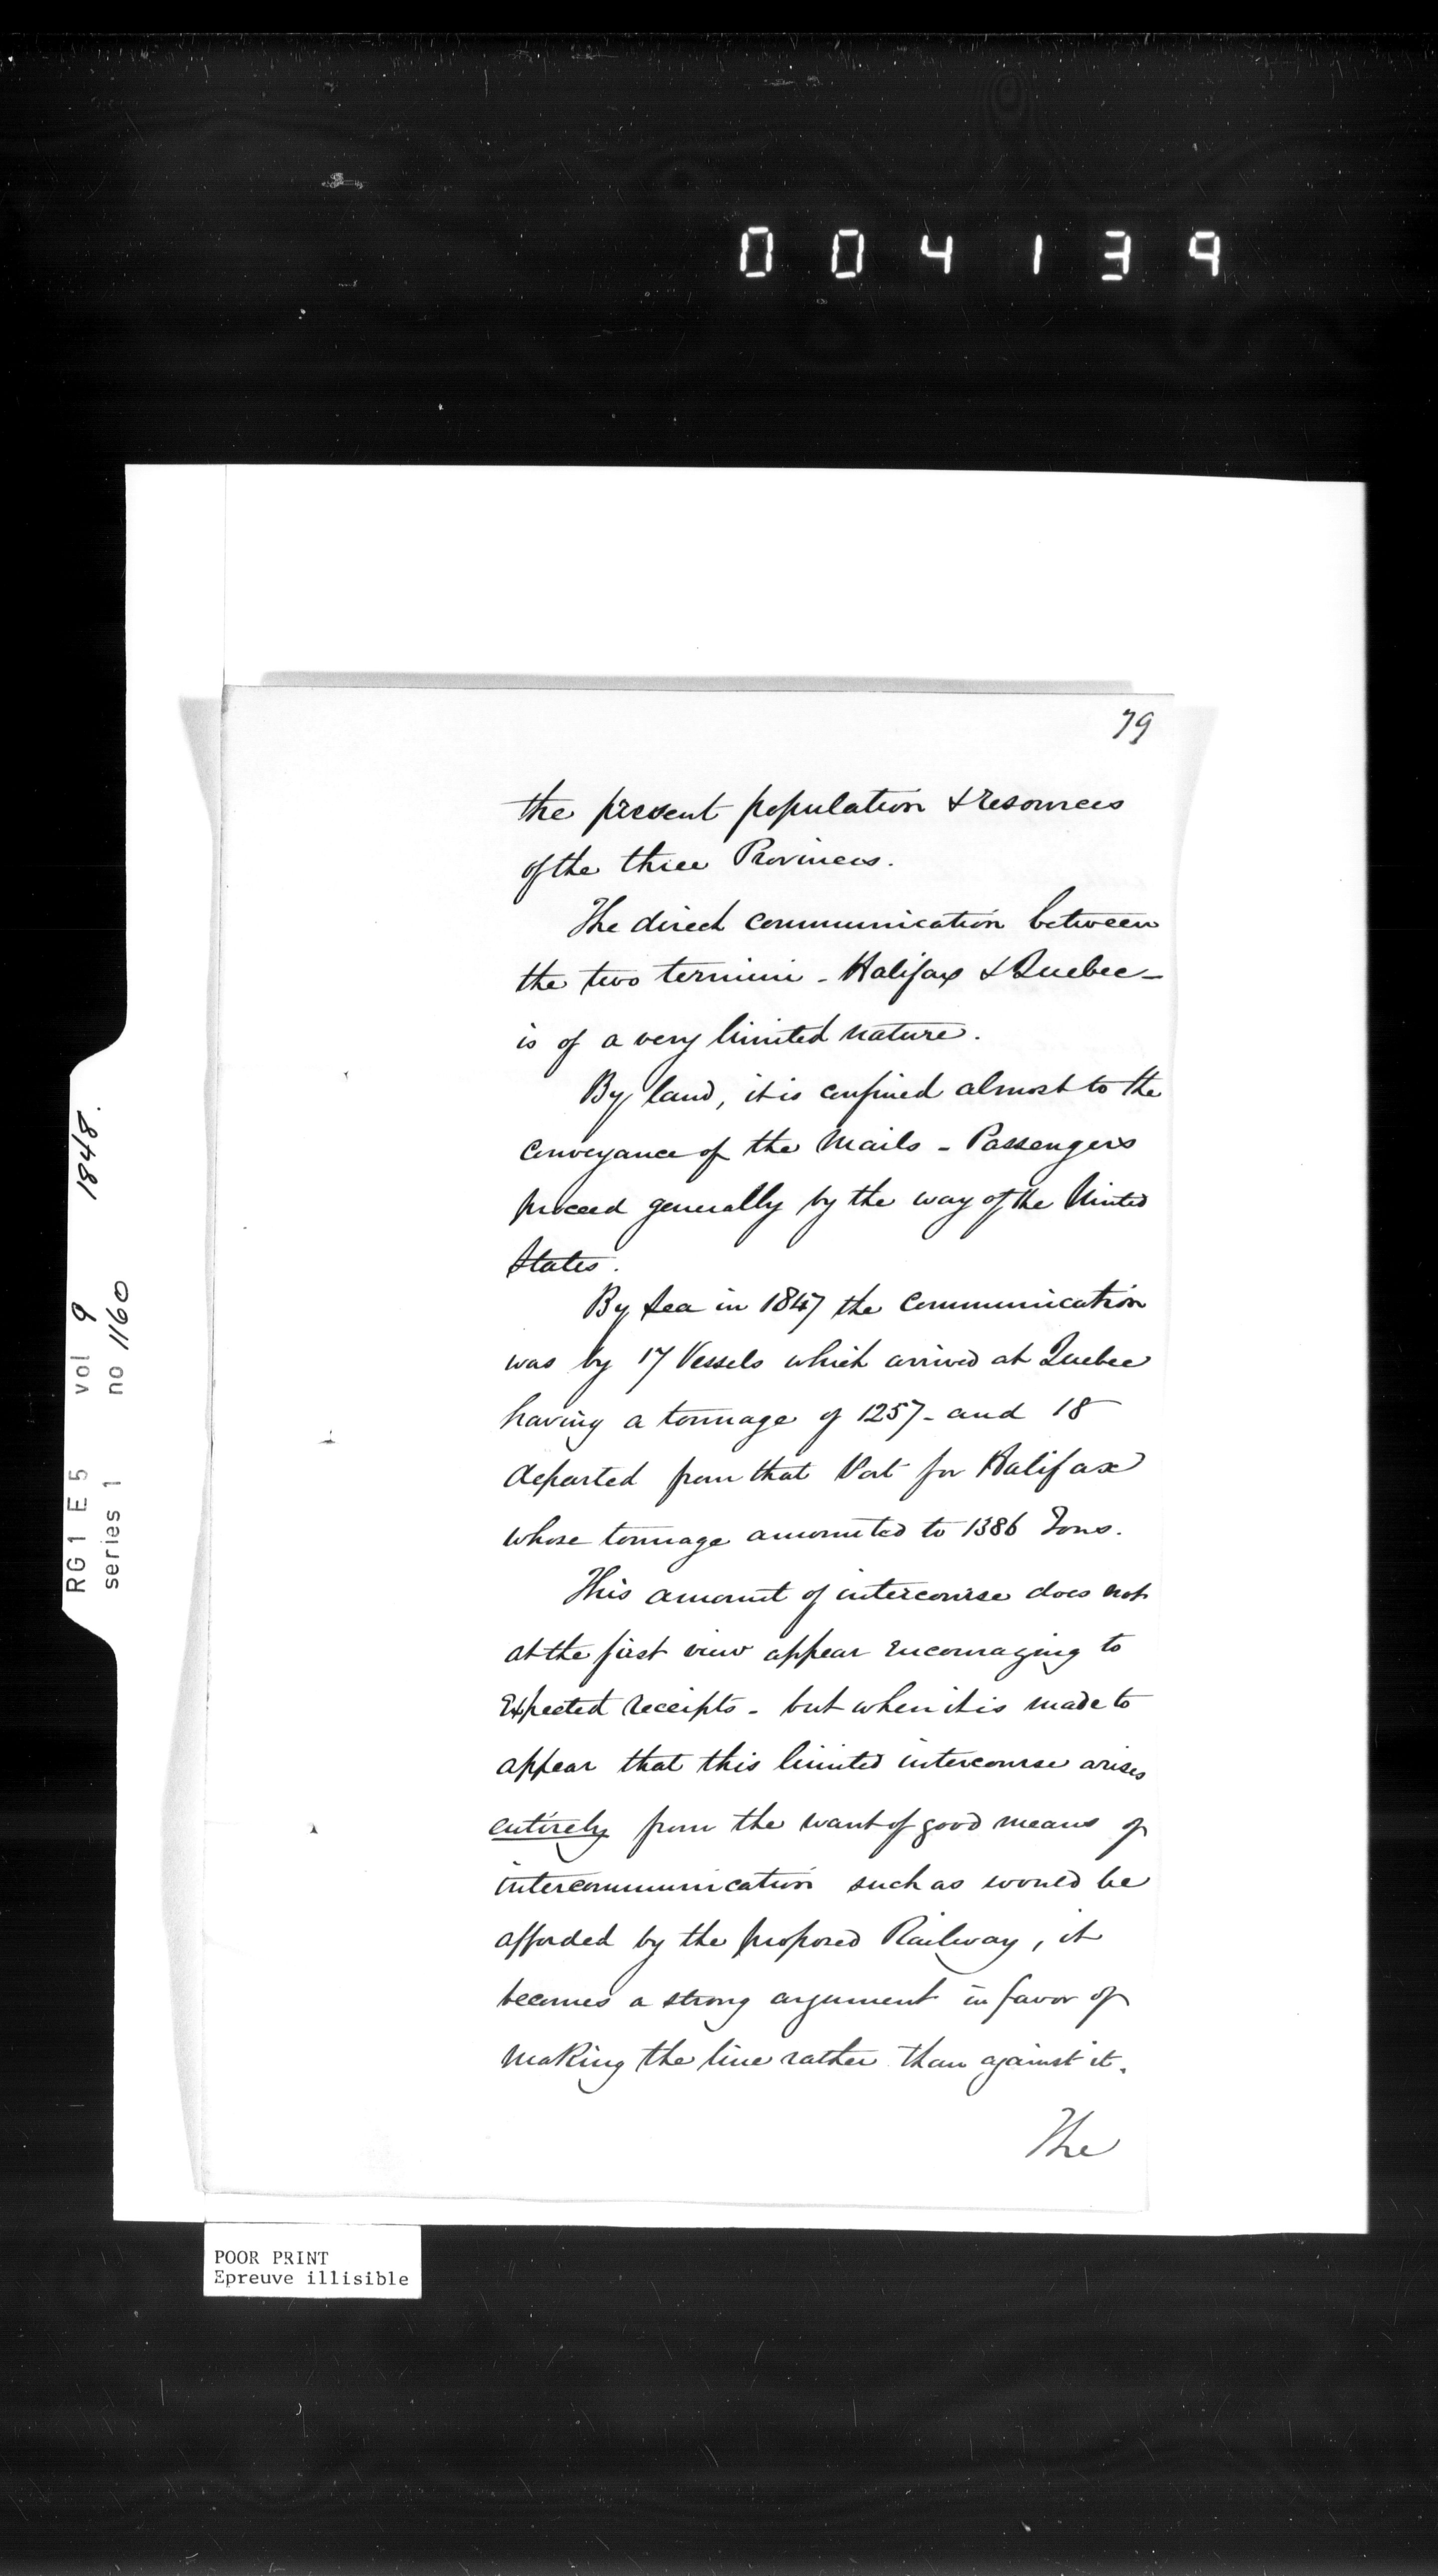 004139
79
the present population & resources
of the three Provinces.
The direct communication between
the two termini - Halifax & Quebec -
is of a very limited nature.
By land, it is confined almost to the
conveyance of the Mails - Passengers
proceed generally by the way of the United
States.
By Sea in 1847 the Communication
was by 17 Vessels which arrived at Quebec
having a tonnage of 1257 - and 18
departed from that Port for Halifax
whose tonnage amounted to 1386 Tons.
This amount of intercourse does not
at the first view appear encouraging to
Expected receipts - but when it is made to
appear that this limited intercourse arises
entirely from the want of good means of
intercommunication such as would be
afforded by the proposed Railway, it
becomes a strong argument in favor of
making the line rather than against it.
The
RG1 E5 vol 9 1848.
series 1 no 1160
POOR PRINT
Epreuve illisible